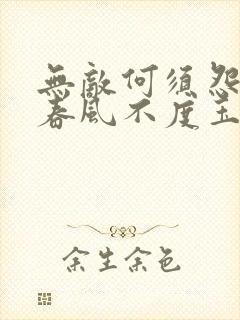 無敵何須怨
春風不度
余生余色